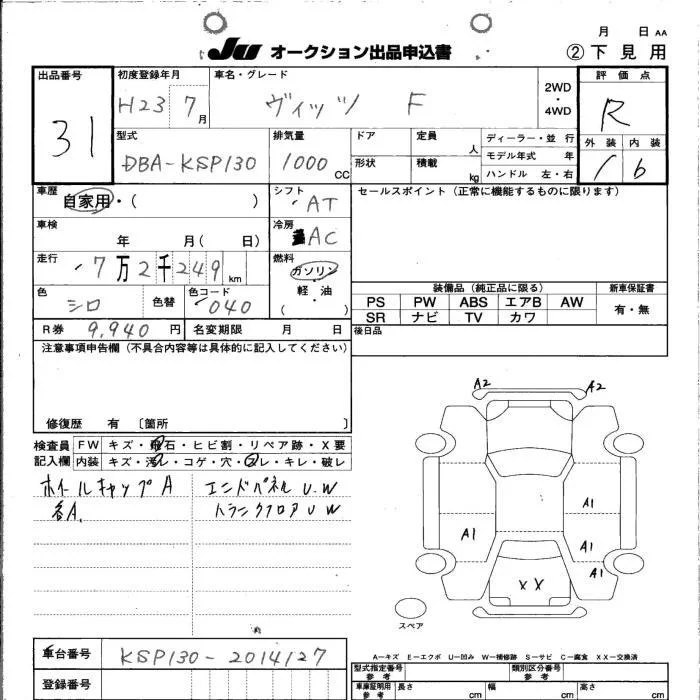 月 日 AA
JU オークション出品申込書 ②下見用
出品番号 31
初度登録年月 H23 7月
車名・グレード ヴィッツ F
2WD・4WD
評価点 R
外装 内装
1 b
型式 DBA-KSP130
排気量 1000 CC
ドア 定員 人
形状 積載 kg
ディーラー・並行
モデル年式 年
ハンドル 左・右
車歴 自家用・( )
シフト AT
セールスポイント(正常に機能するものに限ります)
車検 年 月( 日)
冷房 AC
走行 7万2千249 km
燃料 ガソリン・軽油
( )
色 シロ 色替 色コード 040
装備品(純正品に限る) 新車保証書
PS PW ABS エアB AW 有・無
SR ナビ TV カワ
R券 9,940円 名変期限 月 日
後日品
注意事項申告欄(不具合内容等は具体的に記入してください)
修復歴 有 〔箇所 〕
検査員 FW キズ・飛石・ヒビ割・リペア跡・X要
記入欄 内装 キズ・汚レ・コゲ・穴・スレ・キレ・破レ
ホイールキャップA エンドパネルU.W
各A. トランクフロアUW
A2 A2
A1
A1 A1
A1
XX
スペア
A―キズ E―エクボ U―凹み W―補修跡 S―サビ C―腐食 XX―交換済
車台番号 KSP130-2014127
登録番号
型式指定番号 参考 類別区分番号 参考
車庫証明用 参考 長さ cm 幅 cm 高さ cm